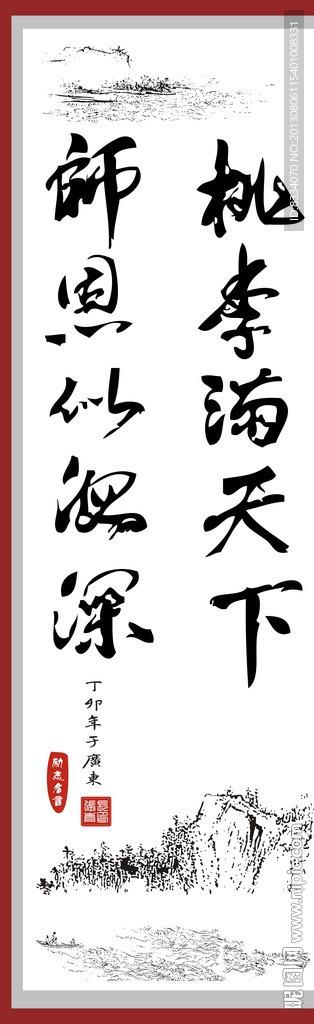 桃李满天下
師恩似海深
丁卯年于廣東
励志名言
ID:8334070 NO:20130806115401008331
昵图网 www.nipic.com